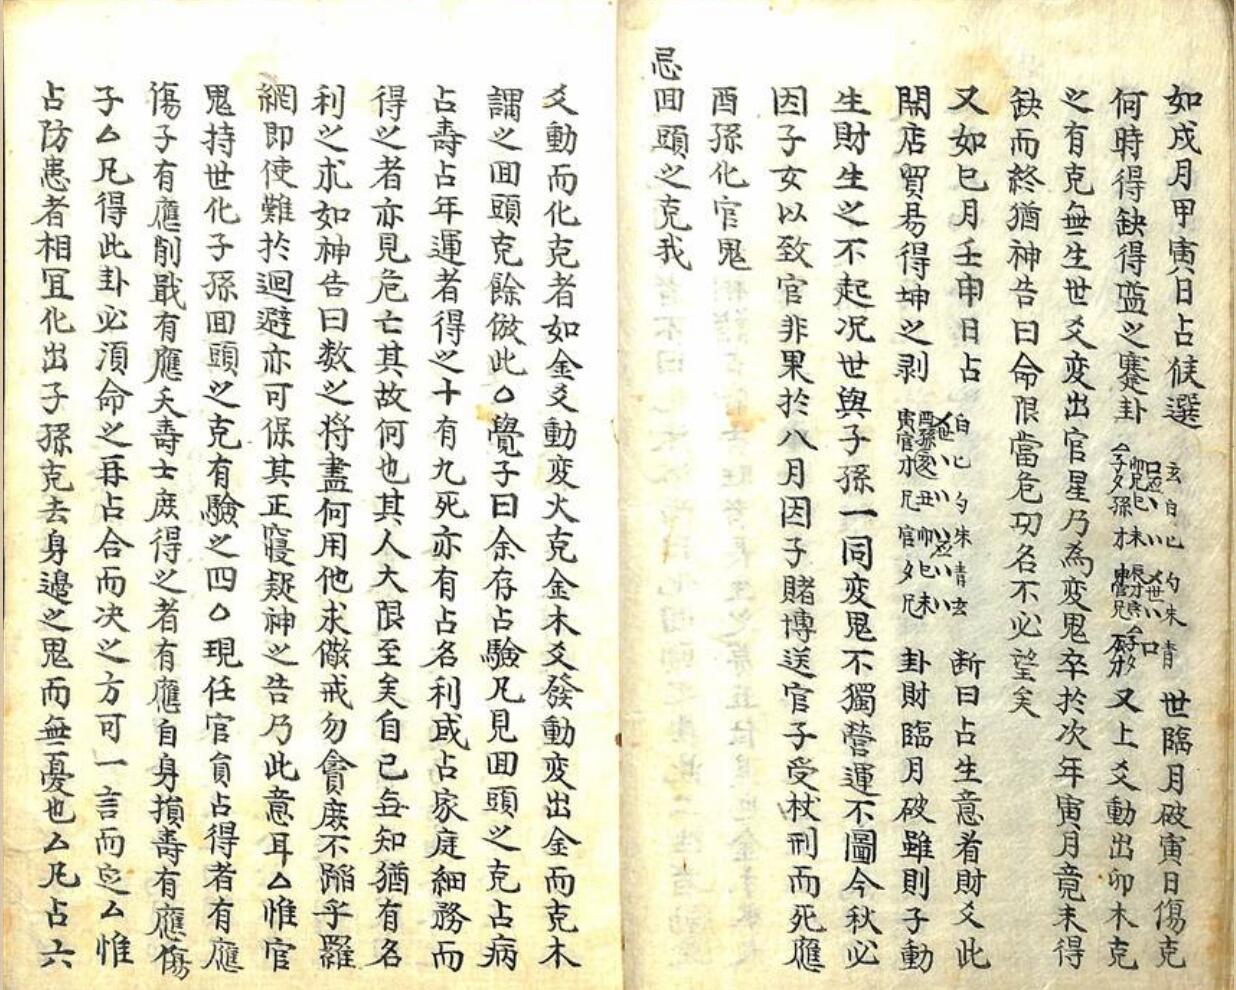 如戌月甲寅日占候選
世臨月破寅日傷克
何時得缺得蠱之蹇卦
又上爻動出卯木克
之有克無生世爻変出官星乃為変鬼卒於次年寅月竟未得
缺而終猶神告曰命限當危功名不必望矣
又如巳月壬申日占
断曰占生意者財爻此
開店買易得坤之剥
卦財臨月破雖則子動
生財生之不起况世與子孫一同変鬼不獨營運不圖今秋必
因子女以致官非果於八月因子賭博送官子受杖刑而死應
酉孫化官鬼
忌回頭之克我
爻動而化克者如金爻動変火克金木爻發動変出金而克木
謂之回頭克餘倣此○覺子曰余存占驗凡見回頭之克占病
占壽占年運者得之十有九死亦有占名利或占家庭細務而
得之者亦見危亡其故何也其人大限至矣自己每知猶有名
利之求如神告曰数之将盡何用他求儆戒勿貪庶不陷乎羅
網即使難於迴避亦可保其正寝疑神之告乃此意耳△惟官
鬼持世化子孫回頭之克有驗之四○現任官員占得者有應
傷子有應削戢有應夭壽士庶得之者有應自身損壽有應傷
子△凡得此卦必須命之再占合而决之方可一言而定△惟
占防患者相冝化出子孫克去身邊之鬼而無憂也△凡占六